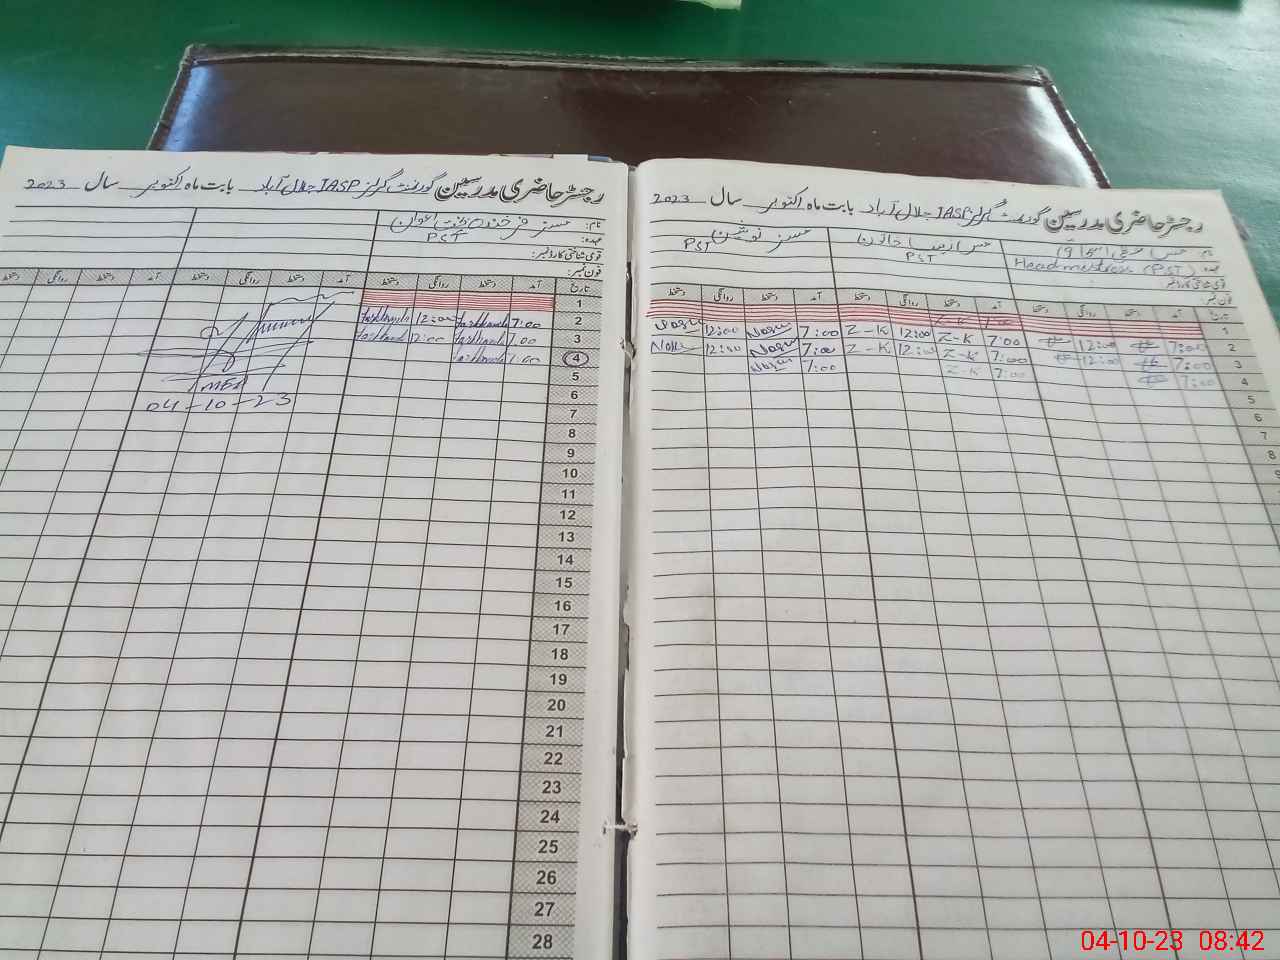 رجسٹر حاضری مدرسین گورنمنٹ گرلز IASP جلال آباد بابت ماہ اکتوبر سال 2023
نام: مسز فرخندہ بخت اعوان
عہدہ: PST
قومی شناختی کارڈ نمبر:
فون نمبر:
تاریخ آمد دستخط روانگی دستخط آمد دستخط روانگی دستخط آمد روانگی دستخط
1
2 7:00 Farkhanda 12:00 Farkhanda
3 7:00 Farkhanda 12:00 Farkhand
4 7:00 Farkhanda
5
6
7
8
9
10
11
12
13
14
15
16
17
18
19
20
21
22
23
24
25
26
27
28
04-10-23
رجسٹر حاضری مدرسین گورنمنٹ گرلز IASP جلال آباد بابت ماہ اکتوبر سال 2023
نام مس
عہدہ Headmistress (PST)
قومی شناختی کارڈ نمبر:
فون نمبر:
خاتون
PST
مسز نوشین
PST
تاریخ آمد دستخط روانگی دستخط آمد دستخط روانگی دستخط آمد دستخط روانگی دستخط
1 Z-K 7:00
2 7:00 12:00 7:00 Z-K 12:00 Z-K 7:00 12:00
3 7:00 12:00 7:00 Z-K 12:00 Z-K 7:00 12:00
4 7:00 7:00 Z-K 7:00
5
6
7
8
9
04-10-23 08:42